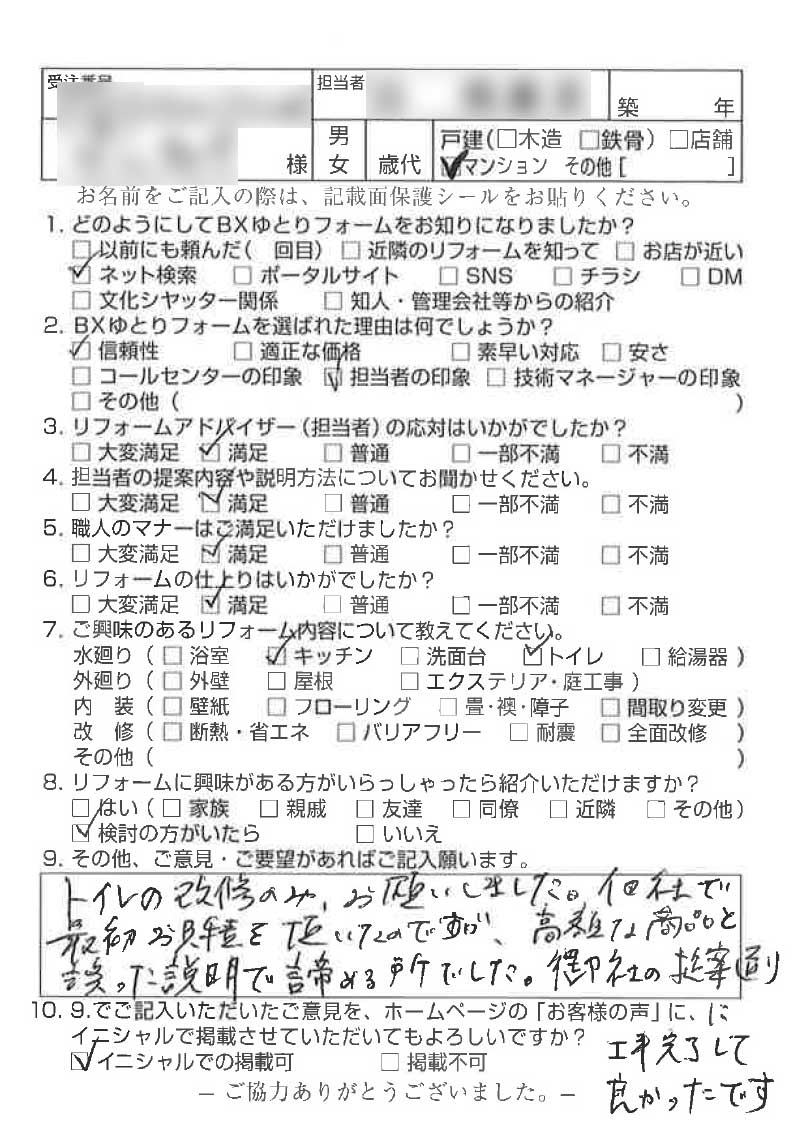 受注番号
担当者
築 年
様
男
女
歳代
戸建(□木造 □鉄骨) □店舗
☑マンション その他[ ]
お名前をご記入の際は、記載面保護シールをお貼りください。
1. どのようにしてBXゆとりフォームをお知りになりましたか?
□以前にも頼んだ( 回目) □近隣のリフォームを知って □お店が近い
☑ネット検索 □ポータルサイト □SNS □チラシ □DM
□文化シヤッター関係 □知人・管理会社等からの紹介
2. BXゆとりフォームを選ばれた理由は何でしょうか?
☑信頼性 □適正な価格 □素早い対応 □安さ
□コールセンターの印象 ☑担当者の印象 □技術マネージャーの印象
□その他( )
3. リフォームアドバイザー(担当者)の応対はいかがでしたか?
□大変満足 ☑満足 □普通 □一部不満 □不満
4. 担当者の提案内容や説明方法についてお聞かせください。
□大変満足 ☑満足 □普通 □一部不満 □不満
5. 職人のマナーはご満足いただけましたか?
□大変満足 ☑満足 □普通 □一部不満 □不満
6. リフォームの仕上りはいかがでしたか?
□大変満足 ☑満足 □普通 □一部不満 □不満
7. ご興味のあるリフォーム内容について教えてください。
水廻り(□浴室 ☑キッチン □洗面台 ☑トイレ □給湯器)
外廻り(□外壁 □屋根 □エクステリア・庭工事)
内 装(□壁紙 □フローリング □畳・襖・障子 □間取り変更)
改 修(□断熱・省エネ □バリアフリー □耐震 □全面改修)
その他( )
8. リフォームに興味がある方がいらっしゃったら紹介いただけますか?
□はい(□家族 □親戚 □友達 □同僚 □近隣 □その他)
☑検討の方がいたら □いいえ
9. その他、ご意見・ご要望があればご記入願います。
トイレの改修のみ、お願いしました。他社で
最初お見積を頂いたのですが、高額な商品と
誤った説明で諦める所でした。御社の提案通り
に
工事完了して
良かったです
10. 9.でご記入いただいたご意見を、ホームページの「お客様の声」に、
イニシャルで掲載させていただいてもよろしいですか?
☑イニシャルでの掲載可 □掲載不可
－ご協力ありがとうございました。－